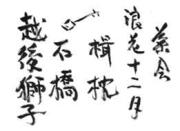 茶会
浪花十二月
楫枕
石橋
越後獅子